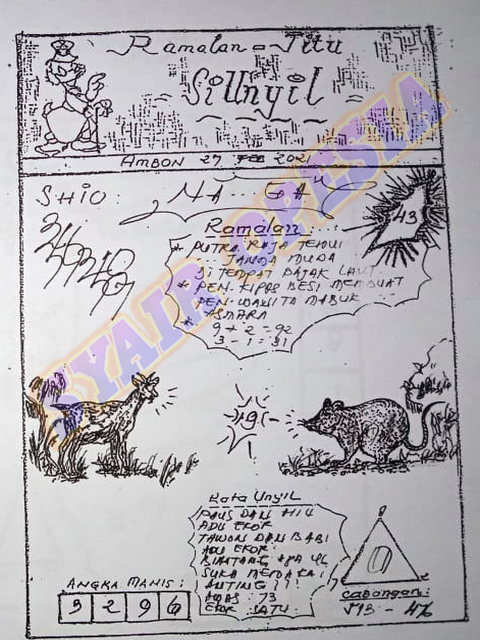 Ramalan = Jitu
Si Unyil
AMBON 27 FEB 202
SHIO: NA...GA"
43
Ramalan:
* PUTRA RAJA TEMUI
TANDA MUDA
DI TEMPAT BAJAK LAUT
* PEN. KIPAS BESI MEMBUAT
PEN. WANITA MABUK
* ASMARA
9 + 2 = 92
3 - 1 = 31
SYAIR OPESIA
19
Kata Unyil
PAUS DAN HIU
ADU EKOR
TAWON DAN BABI
ADU EKOR
BINTANG
SUKA MENDAKI
ANTING
: 73
EKOR SATU
ANGKA MANIS:
9 2 9 6
Cabangan:
- 46